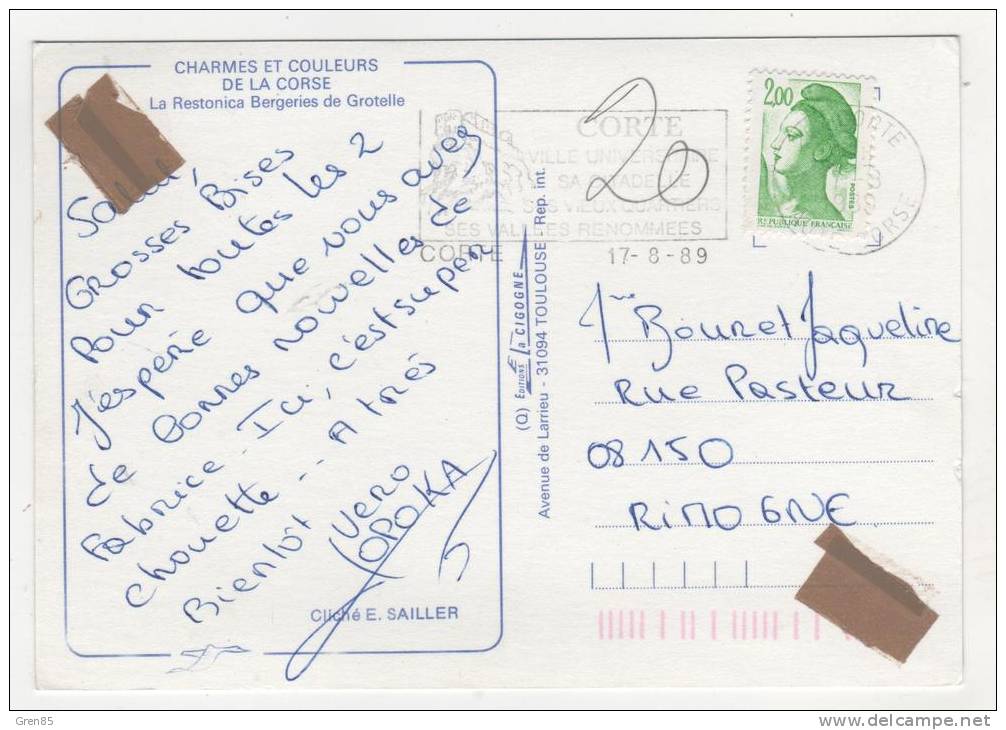 CHARMES ET COULEURS
DE LA CORSE
La Restonica Bergeries de Grotelle
Salut,
Grosses Bises
Pour toutes les 2
J'espère que vous avez
de bonnes nouvelles de
Fabrice. Ici, c'est super
chouette... A très
Bientôt
Vero
TOPOKA
Cliché E. SAILLER
(Q) EDITIONS La CIGOGNE
Avenue de Larrieu - 31094 TOULOUSE - Rep. int.
20
CORTE
VILLE UNIVERSITAIRE
SA CITADELLE
SES VIEUX QUARTIERS
SES VALLEES RENOMMEES
CORTE 17-8-89
2,00
POSTES
REPUBLIQUE FRANÇAISE
CORTE
CORSE
Mme Bouret Jaqueline
Rue Pasteur
08150
RIMOGNE
Gren85
delcampe.net